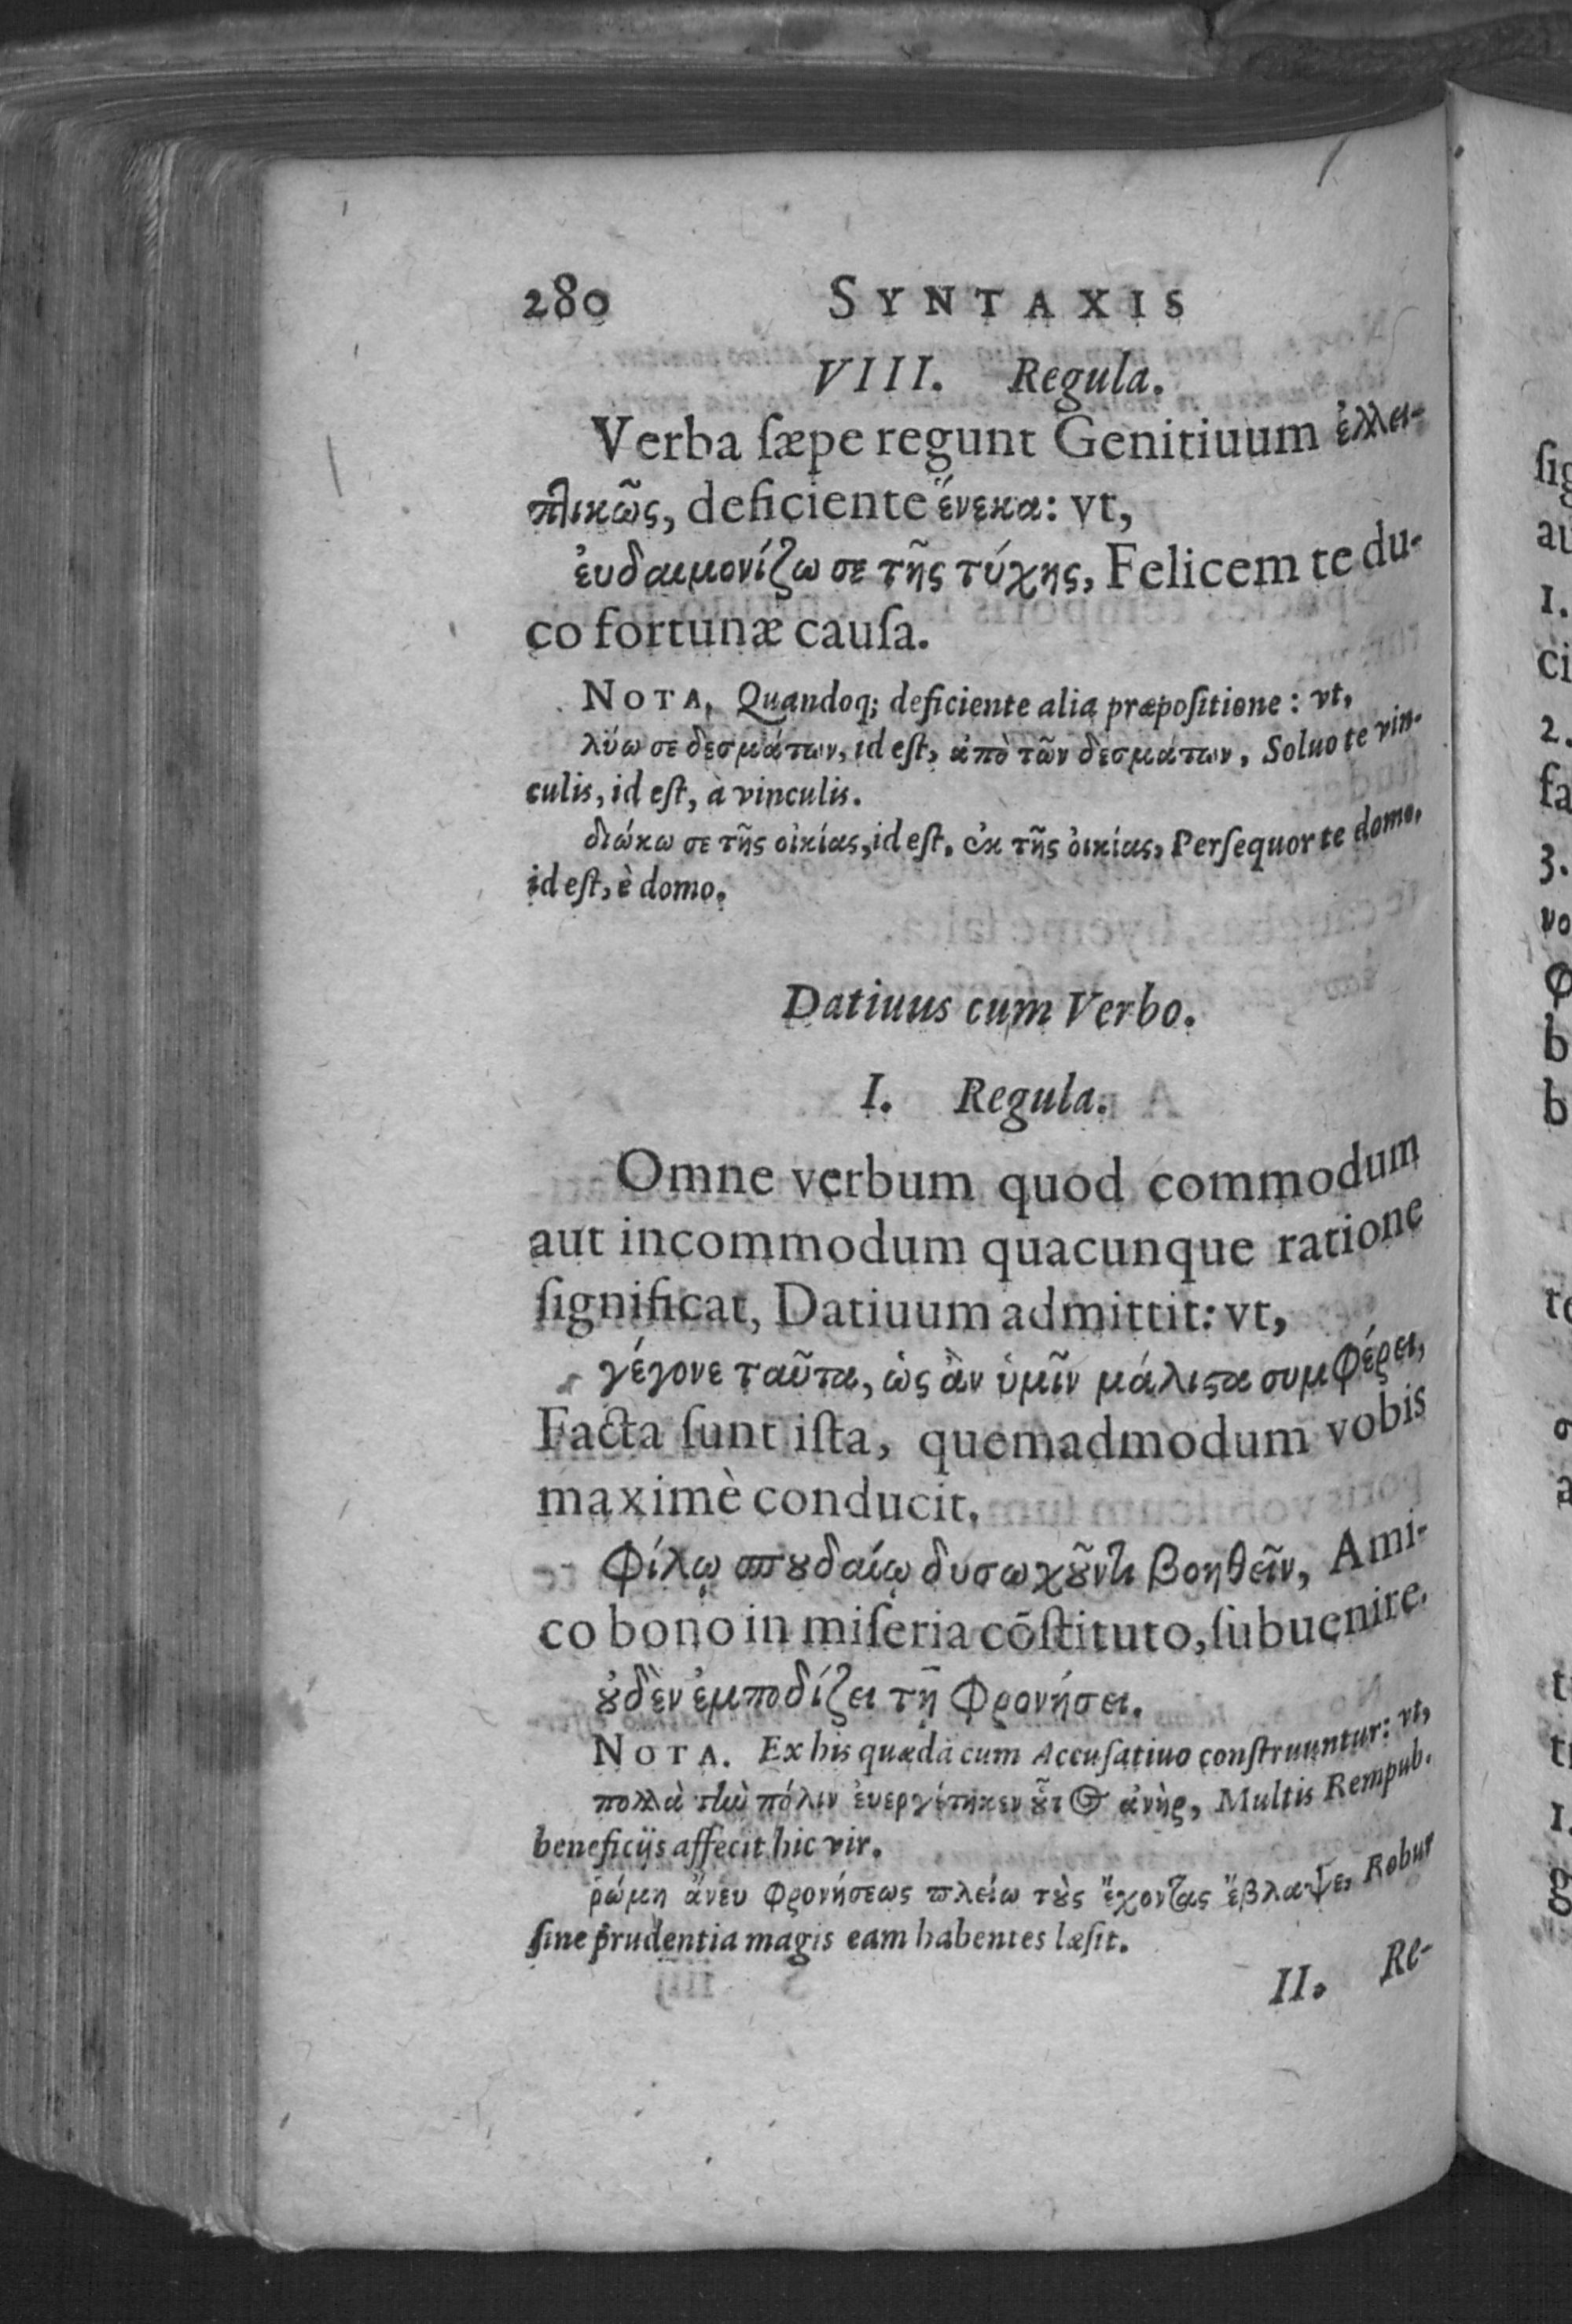 280 SYNTAXIS
VIII. Regula.
Verba sæpe regunt Genitiuum ἐλλει-
πτικῶς, deficiente ἕνεκα: vt,
ἐυδαιμονίζω σε τῆς τύχης, Felicem te du-
co fortunæ causa.
NOTA, Quandoq; deficiente alia præpositione: vt,
λύω σε δεσμάτων, id est, ἀπὸ τῶν δεσμάτων, Soluo te vin-
culis, id est, à vinculis.
διώκω σε τῆς οἰκίας, id est, ἐκ τῆς ὀικίας, Persequor te domo,
id est, è domo.
Datiuus cum Verbo.
I. Regula.
Omne verbum quod commodum
aut incommodum quacunque ratione
significat, Datiuum admittit: vt,
γέγονε ταῦτα, ὡς ἂν ὑμῖν μάλιϛα συμφέρει,
Facta sunt ista, quemadmodum vobis
maximè conducit.
φίλῳ σπȣδαίῳ δυσωχȣ͂ντι βοηθεῖν, Ami-
co bono in miseria cōstituto, subuenire.
ȣ̓δὲν ἐμποδίζει τῇ φρονήσει.
NOTA. Ex his quædā cum Accusatiuo construuntur: vt,
πολλὰ τὴν πόλιν ἐυεργέτηκεν ȣ̔͂τος ἀνὴρ, Multis Rempub.
beneficijs affecit hic vir.
ῥώμη ἄνευ φρονήσεως πλείω τȣ̀ς ἔχοντας ἔβλαψε, Robur
sine prudentia magis eam habentes læsit.
II. Re-